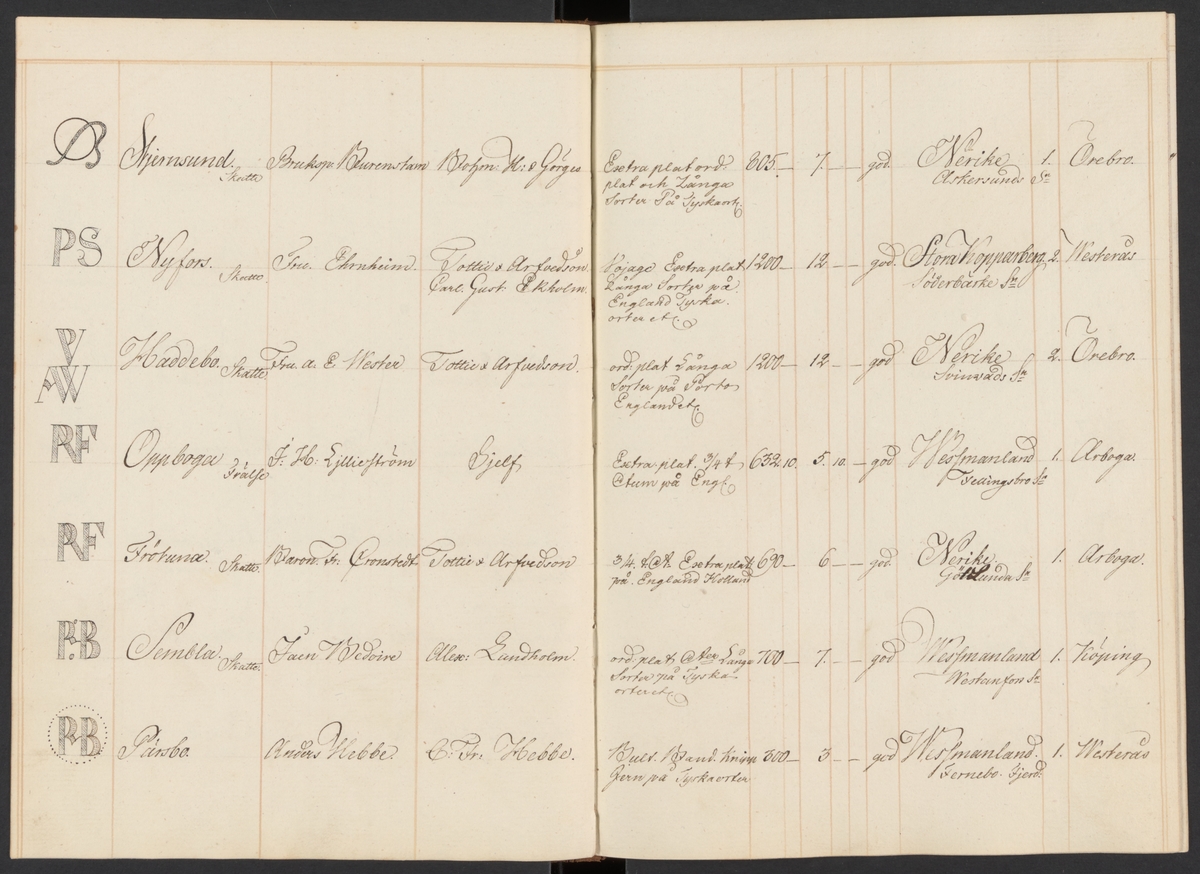 B Stjernsund. Skatte Bruksp. Burensham Bohm. H: & Görges Extra plat ord: 805. — 7. — — god. Nerike 1. Örebro.
plat och Långa Askersunds Sn
Sorter På Tyska ort.
PS Nyfors. Skatte Fru. Ehrnheim. Tottie & Arfvedson. Vojage Extra plat 1200 — 12 — — god. Stora Kopparberg 2. Westerås
Carl. Gust. Ekholm. Långa Sorter på Söderbärke Sn
England Tyska
orter etc.
P AW Haddebo. Skatte Fru. A. E Wester Tottie & Arfvedson. ord: plat Långa 1200 — 12 — — god Nerike 2. Örebro.
Sorter på Porto Svinvads Sn
England etc.
RF Oppboga Frälse F: H: Lilliström Sjelf Extra plat. 3/4 t 632.10. 5. 10. — god Westmanland 1. Arboga.
Ctum på Engl. Fellingsbro Sn
RF Frötuna. Skatte. Baron. Fr: Cronstedt Tottie & Arfvedson 3/4. t. Ct. Extra plat 690 — 6 — — god. Nerike 1. Arboga.
på. England Holland Götlunda Sn
PB Sembla. Skatte. Jaen Bedoire Alex: Lundholm. ord: plat Långa 700 — 7. — — god Westmanland 1. Köping
Sorter på Tyska Westanfors Sn
orter etc.
PB Pärsbo. Anders Hebbe C: Fr: Hebbe. Bult. Band. Knipp 300 — 3 — — god Westmanland. 1. Westerås
Jern på Tyska orter Fernebo. Fjerd: